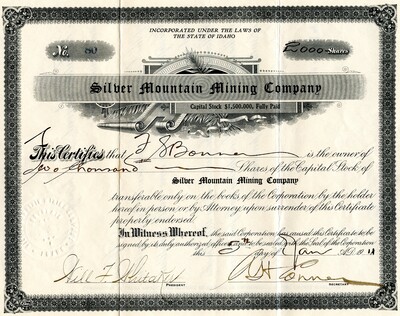 INCORPORATED UNDER THE LAWS OF
THE STATE OF IDAHO
No. 80
2000 Shares
Silver Mountain Mining Company
Capital Stock $1,500,000, Fully Paid
This Certifies that F S Bonner is the owner of
Two thousand Shares of the Capital Stock of
Silver Mountain Mining Company
transferable only on the books of the Corporation by the holder
hereof in person or by Attorney upon surrender of this Certificate
properly endorsed.
In Witness Whereof, the said Corporation has caused this Certificate to be
signed by its duly authorized officers and to be sealed with the Seal of the Corporation
this 5th day of Jan A.D. 19
Will F
PRESIDENT
SECRETARY